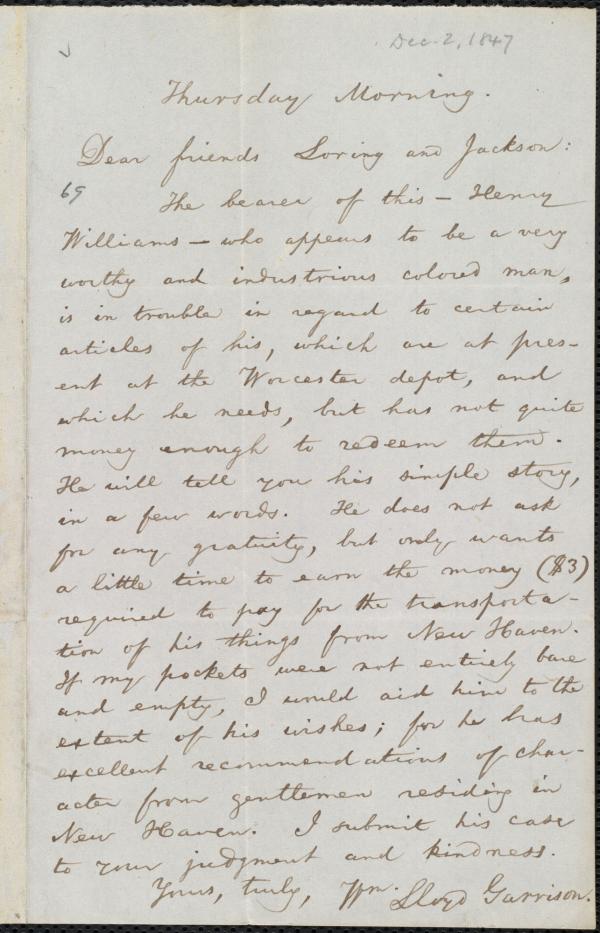 Dec. 2, 1847
Thursday Morning.
Dear friends Loring and Jackson:
69
The bearer of this — Henry
Williams — who appears to be a very
worthy and industrious colored man,
is in trouble in regard to certain
articles of his, which are at pres-
ent at the Worcester depot, and
which he needs, but has not quite
money enough to redeem them.
He will tell you his simple story,
in a few words. He does not ask
for any gratuity, but only wants
a little time to earn the money ($3)
required to pay for the transporta-
tion of his things from New Haven.
If my pockets were not entirely bare
and empty, I would aid him to the
extent of his wishes; for he has
excellent recommendations of char-
acter from gentlemen residing in
New Haven. I submit his case
to your judgment and kindness.
Yours, truly, Wm. Lloyd Garrison.